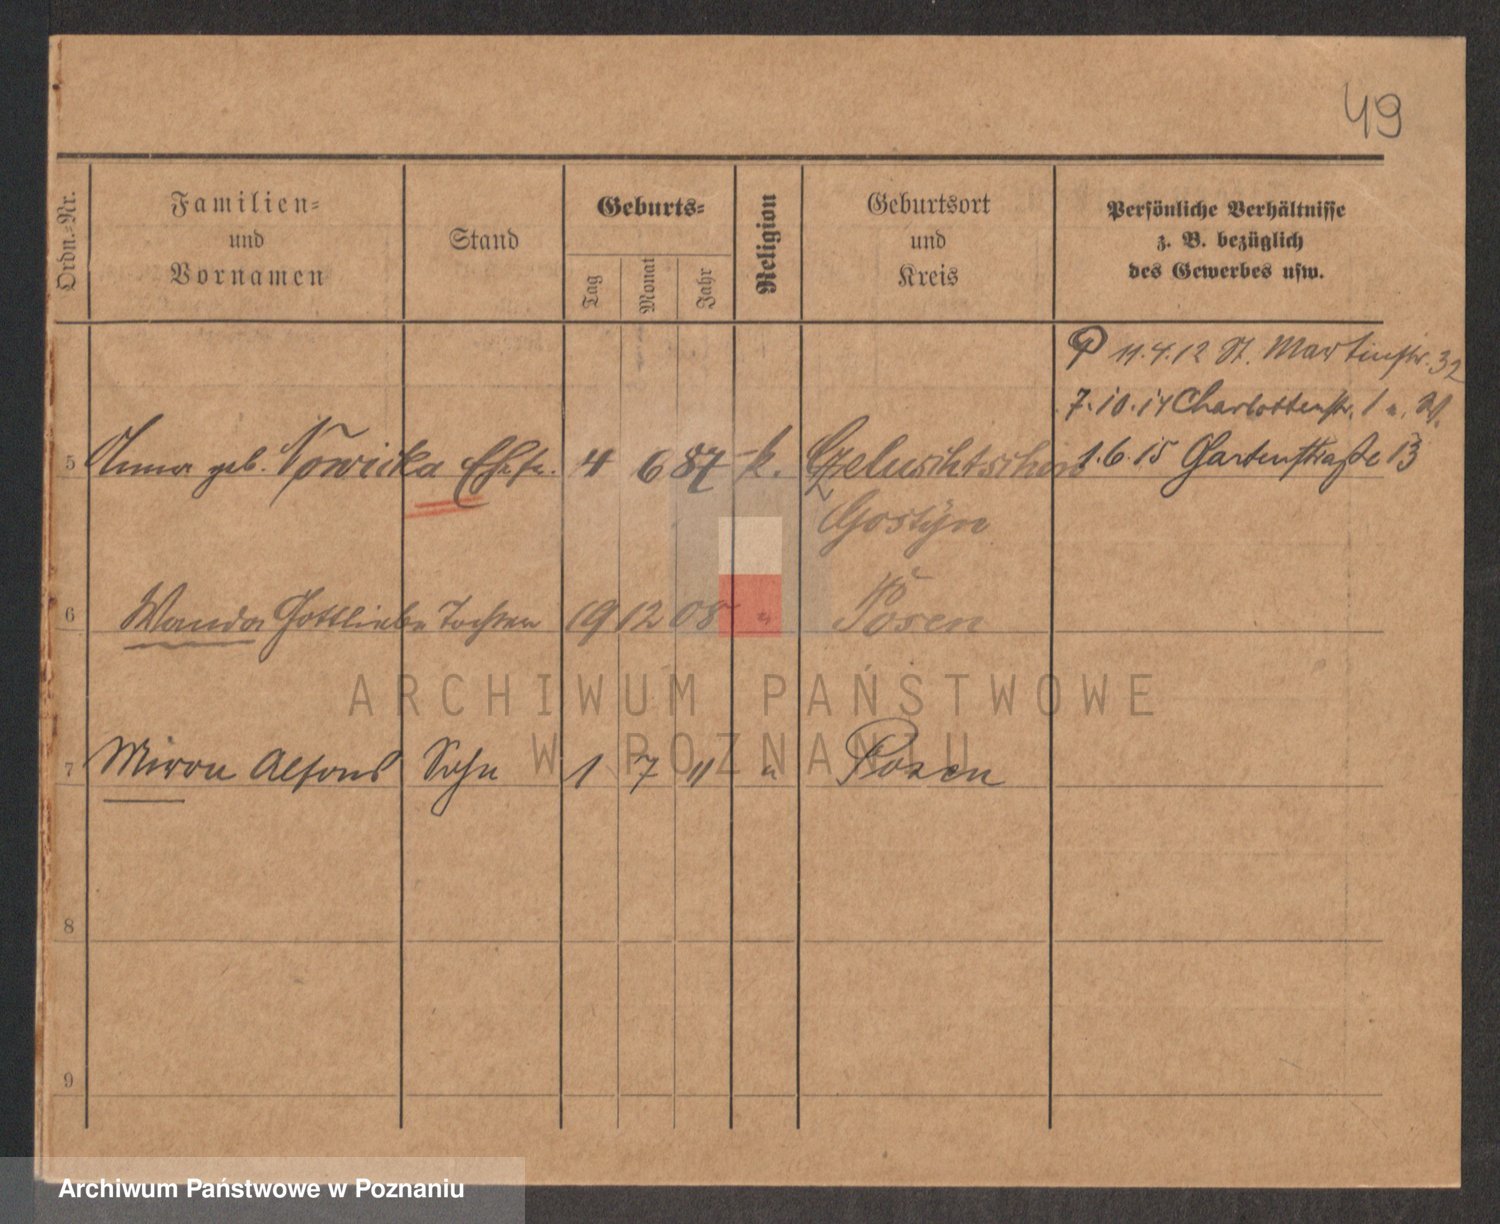 49
Ordn.-Nr.
Familien-
und
Vornamen
Stand
Geburts-
Tag
Monat
Jahr
Religion
Geburtsort
und
Kreis
Persönliche Verhältnisse
z. B. bezüglich
des Gewerbes usw.
11.4.12 St. Martinstr. 32
7.10.14 Charlottenstr. 1
1.6.15 Gartenstraße 13
5 Anna geb. Nowicka Ehefr. 4 6 87 k.
Gostyn
6 Wanda Gottliebe Tochter 19 12 08 " Posen
7 Miron Alfons Sohn 1 7 11 " Posen
8
9
ARCHIWUM PAŃSTWOWE
W POZNANIU
Archiwum Państwowe w Poznaniu